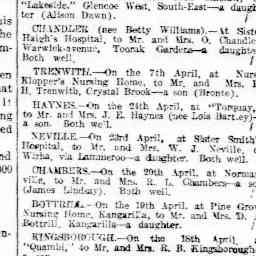 "Lakeside," Glencoe West, South-East—a daugh-
ter (Alison Dawn).
CHANDLER (nee Betty Williams).—At Siste
Haigh's Hospital, to Mr. and Mrs. O. Chandle
Warwick-avenue, Toorak Gardens—a daught
Both well.
TRENWITH.—On the 7th April, at Nurs
Klopper's Nursing Home, to Mr. and Mrs.
H. Trenwith, Crystal Brook—a son (Bronte).
HAYNES.—On the 24th April, at "Torquay,
to Mr. and Mrs. J. E. Haynes (nee Lois Bartley)—
a son. Both well.
NEVILLE.—On 23rd April, at Sister Smith'
Hospital, to Mr. and Mrs. W. J. Neville,
Wirha, via Lameroo—a daughter. Both well.
CHAMBERS.—On the 20th April, at Norman
ville, to Mr. and Mrs. R. L. Chambers—a so
(James Lindsay). Both well.
BOTTRILL.—On the 19th April, at Pine Grov
Nursing Home, Kangarilla, to Mr. and Mrs. D.
Bottrill, Kangarilla—a daughter.
KINGSBOROUGH.—On the 18th April,
"Quambi," to Mr. and Mrs. R. B. Kingsborough